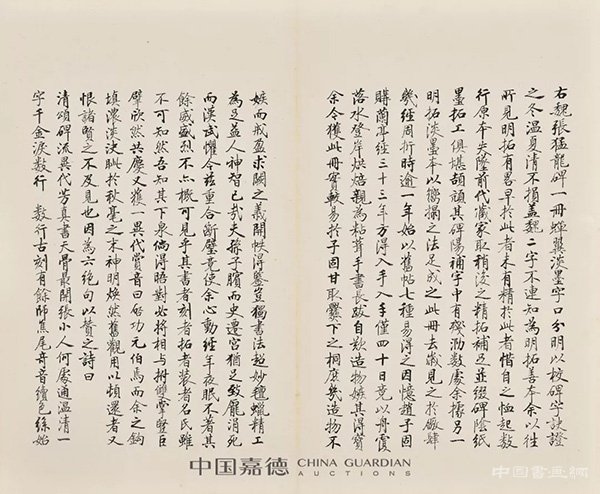 右魏張猛龍碑一冊蟬翼淡墨字口分明以校碑字訣證
之冬溫夏清不損蓋魏二字不連知為明拓善本余以往
所見明拓有畧早於此者未有精於此者惜自之恤起數
行原本失墜前代藏家取稍後之精拓補足並綴碑陰紙
墨拓工俱堪頡頏其碑陽補字中有泐數處余據另一
明拓淡墨本以之法足成之此冊去歲見之於廠肆
幾經周折時逾一年始以舊帖七種易得之因憶趙子固
購蘭亭經三十三年方得入手入手僅四十日竟以舟覆
落水登岸烘焙親為粘葺手書長跋自歎造物嫉其得寶
余今獲此冊實較易於子固甘取爨下之桐庶幾造物不
嫉而戒盈求闕之義開帙得鑒豈獨書法超妙氊蠟精工
為足益人神智已哉夫孫子臏而史遷宮猶足致龍涓死
而漢武懼今茲重合斷璧竟使余心動經年夜眠不著其
餘威盛烈不亦概可見乎其書者刻者拓者裝者名氏雖
不可知然吾知其下泉倘得晤對必將相與拊掌豎巨
擘欣然共慶又獲一異代賞音曰啟功元伯焉而余之鉤
填濃淡決眦於秋毫之末神明煥然舊觀用以頓還者又
恨諸賢之不及見也因為六絕句以贊之詩曰
清頌碑流異代芳真書天骨最開張小人何處通溫清一
字千金淚數行 數行古刻有餘師焦尾奇音續色絲始
中国嘉德 CHINA GUARDIAN AUCTIONS
中国書画網